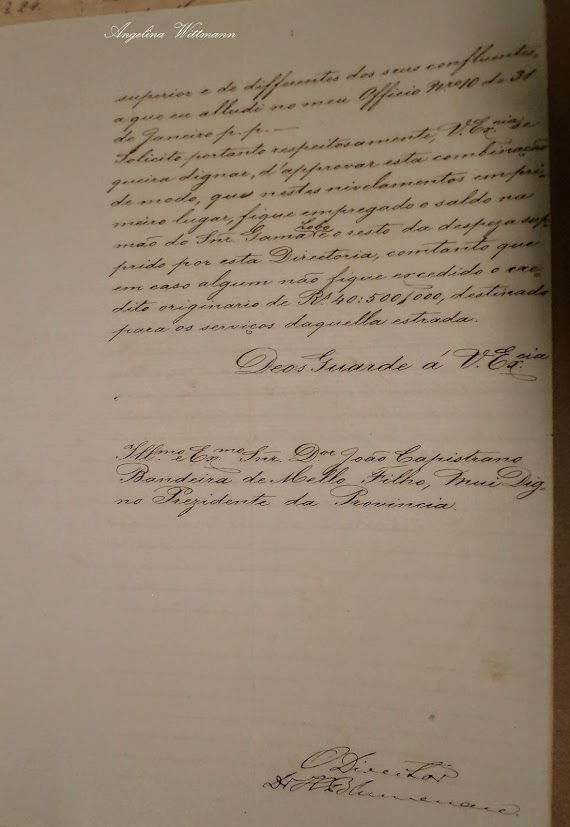 Angelina Wittmann
superior e de differentes dos seus confluentes,
a que eu alludi no meu Officio Nro 10 de 31
de Janeiro p. p. —
Solicito portanto respeitosamente, V. Ex.cia se
queira dignar, d'approvar esta combinação
de modo, que nestes nivelamentos em pri-
meiro lugar, fique empregado o saldo na
mão do Snr. Gama Lobo e o resto da despeza sup-
prido por esta Directoria, comtanto que
em caso algum não fique excedido o cre-
dito originario de Rs 40:500/000, destinado
para os serviços daquella estrada.
Deos Guarde á V. Ex.cia
Illmo. e Ex.mo Snr. Dor João Capistrano
Bandeira de Mello Filho, Mui Dig-
no Prezidente da Provincia.
O Director
Dr H Blumenau.